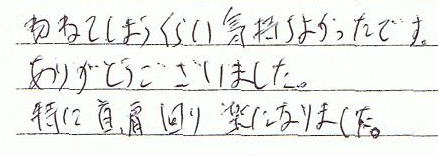 力ねてしまうくらい気持ちよかったです。
ありがとうございました。
特に首、肩回り 楽になりました。